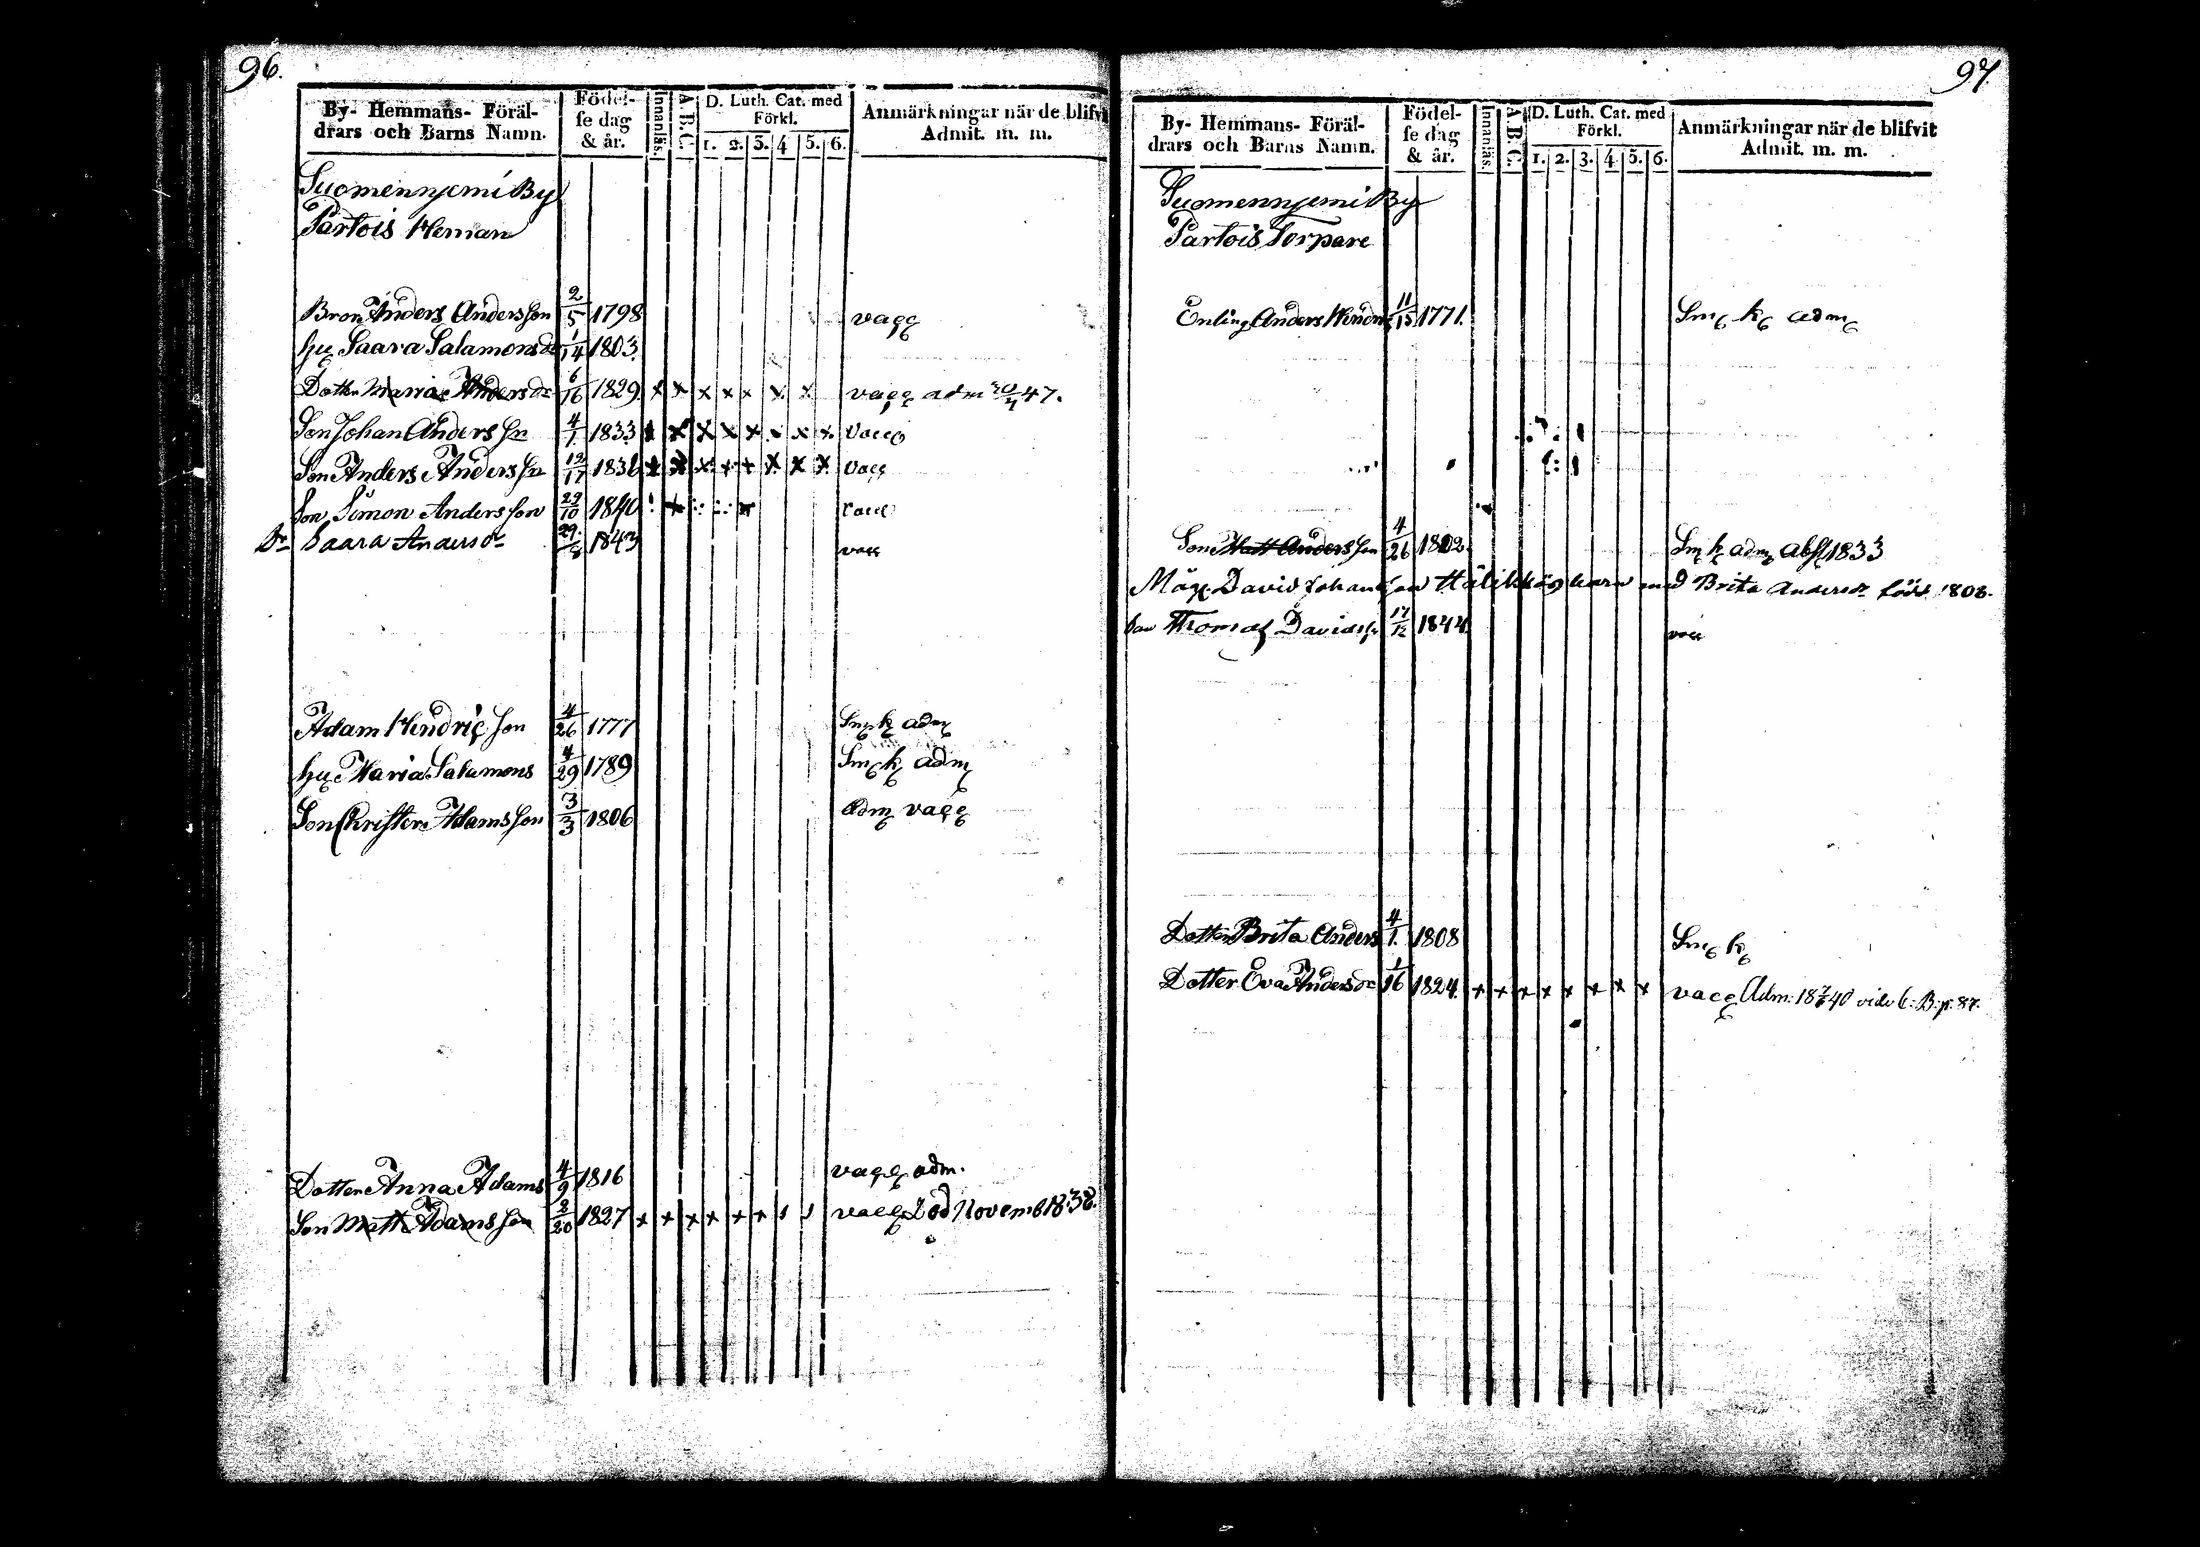 96.
By- Hemmans- Föräl-
drars och Barns Namn.
Födel-
se dag
& år.
Innanläs.
A. B. C.
D. Luth. Cat. med
Förkl.
1. 2. 3. 4 5. 6.
Anmärkningar när de blifvi
Admit. m. m.
Suomennjemi By
Partois Heman
Bron Anders Andersson 2/5 1798 vacc
hu Saara Salamonsdr 1/14 1803.
Dotter Maria Andersdr 6/16 1829 x x x x x x x vacc adm 20/4 47.
Son Johan Anderssn 4/1 1833 x x x x x x x x vacc
Son Anders Anderssn 12/17 1836 x x x x x x x x vacc
Son Simon Andersson 29/10 1840 vacc
Dr Saara Andersdr 29/8 1843 vacc
Adam Hindricsson 4/26 1777 Smk adm
hu Maria Salamons 4/29 1789 Smk adm
Son Christer Adamsson 3/3 1806 adm vacc
Dotter Anna Adams 4/9 1816 vacc adm.
Son Matts Adamsson 3/20 1827 x x x x x x vacc död Novemb 1838.
97
By- Hemmans- Föräl-
drars och Barns Namn.
Födel-
se dag
& år.
Innanläs.
A. B. C.
D. Luth. Cat. med
Förkl.
1. 2. 3. 4. 5. 6.
Anmärkningar när de blifvit
Admit. m. m.
Suomennjemi By
Partois Torpare
Enling Anders Hindr 11/15 1771. Sm k adm
Son Matt Andersson 4/26 1802 Sm k adm abs 1833
Måg David Johansson med Brita Andersdr född 1808.
Son Thomas Davidss 17/12 1844 vacc
Dotter Brita Anders 4/1. 1808 Sm k
Dotter Eva Andersdr 1/16 1824. x x x x x x x x vacc Adm: 18 7/6 40 vide C: B: p: 87.